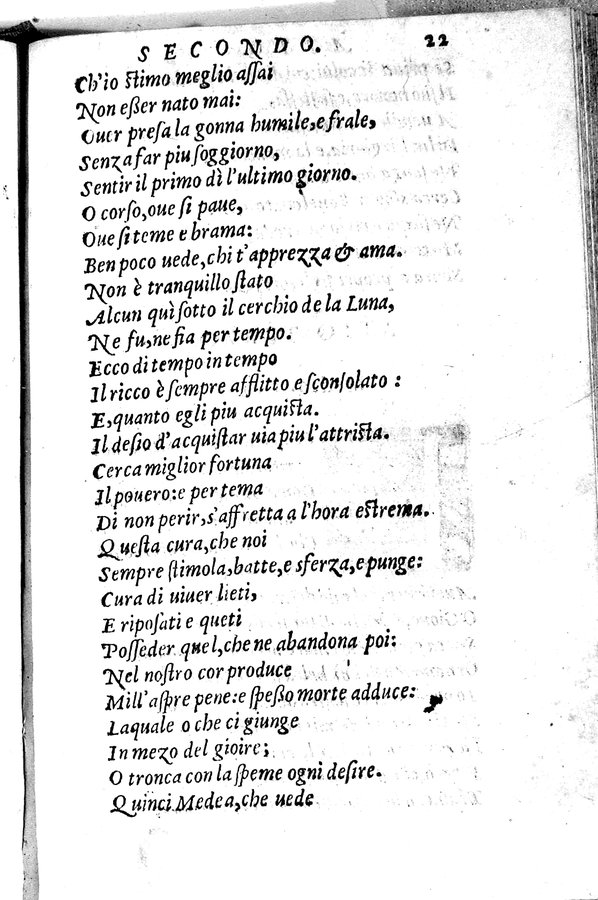 SECONDO. 22
Ch'io stimo meglio assai
Non eßer nato mai:
Ouer presa la gonna humile, e frale,
Senza far piu soggiorno,
Sentir il primo dì l'ultimo giorno.
O corso, oue si paue,
Oue si teme e brama:
Ben poco uede, chi t'apprezza & ama.
Non è tranquillo stato
Alcun quì sotto il cerchio de la Luna,
Ne fu, ne fia per tempo.
Ecco di tempo in tempo
Il ricco è sempre afflitto e sconsolato :
E, quanto egli piu acquista.
Il desio d'acquistar uia piu l'attrista.
Cerca miglior fortuna
Il pouero: e per tema
Di non perir, s'affretta a l'hora estrema.
Questa cura, che noi
Sempre stimola, batte, e sferza, e punge:
Cura di uiuer lieti,
E riposati e queti
Posseder quel, che ne abandona poi:
Nel nostro cor produce
Mill'aspre pene: e speßo morte adduce:
Laquale o che ci giunge
In mezo del gioire;
O tronca con la speme ogni desire.
Quinci Medea, che uede